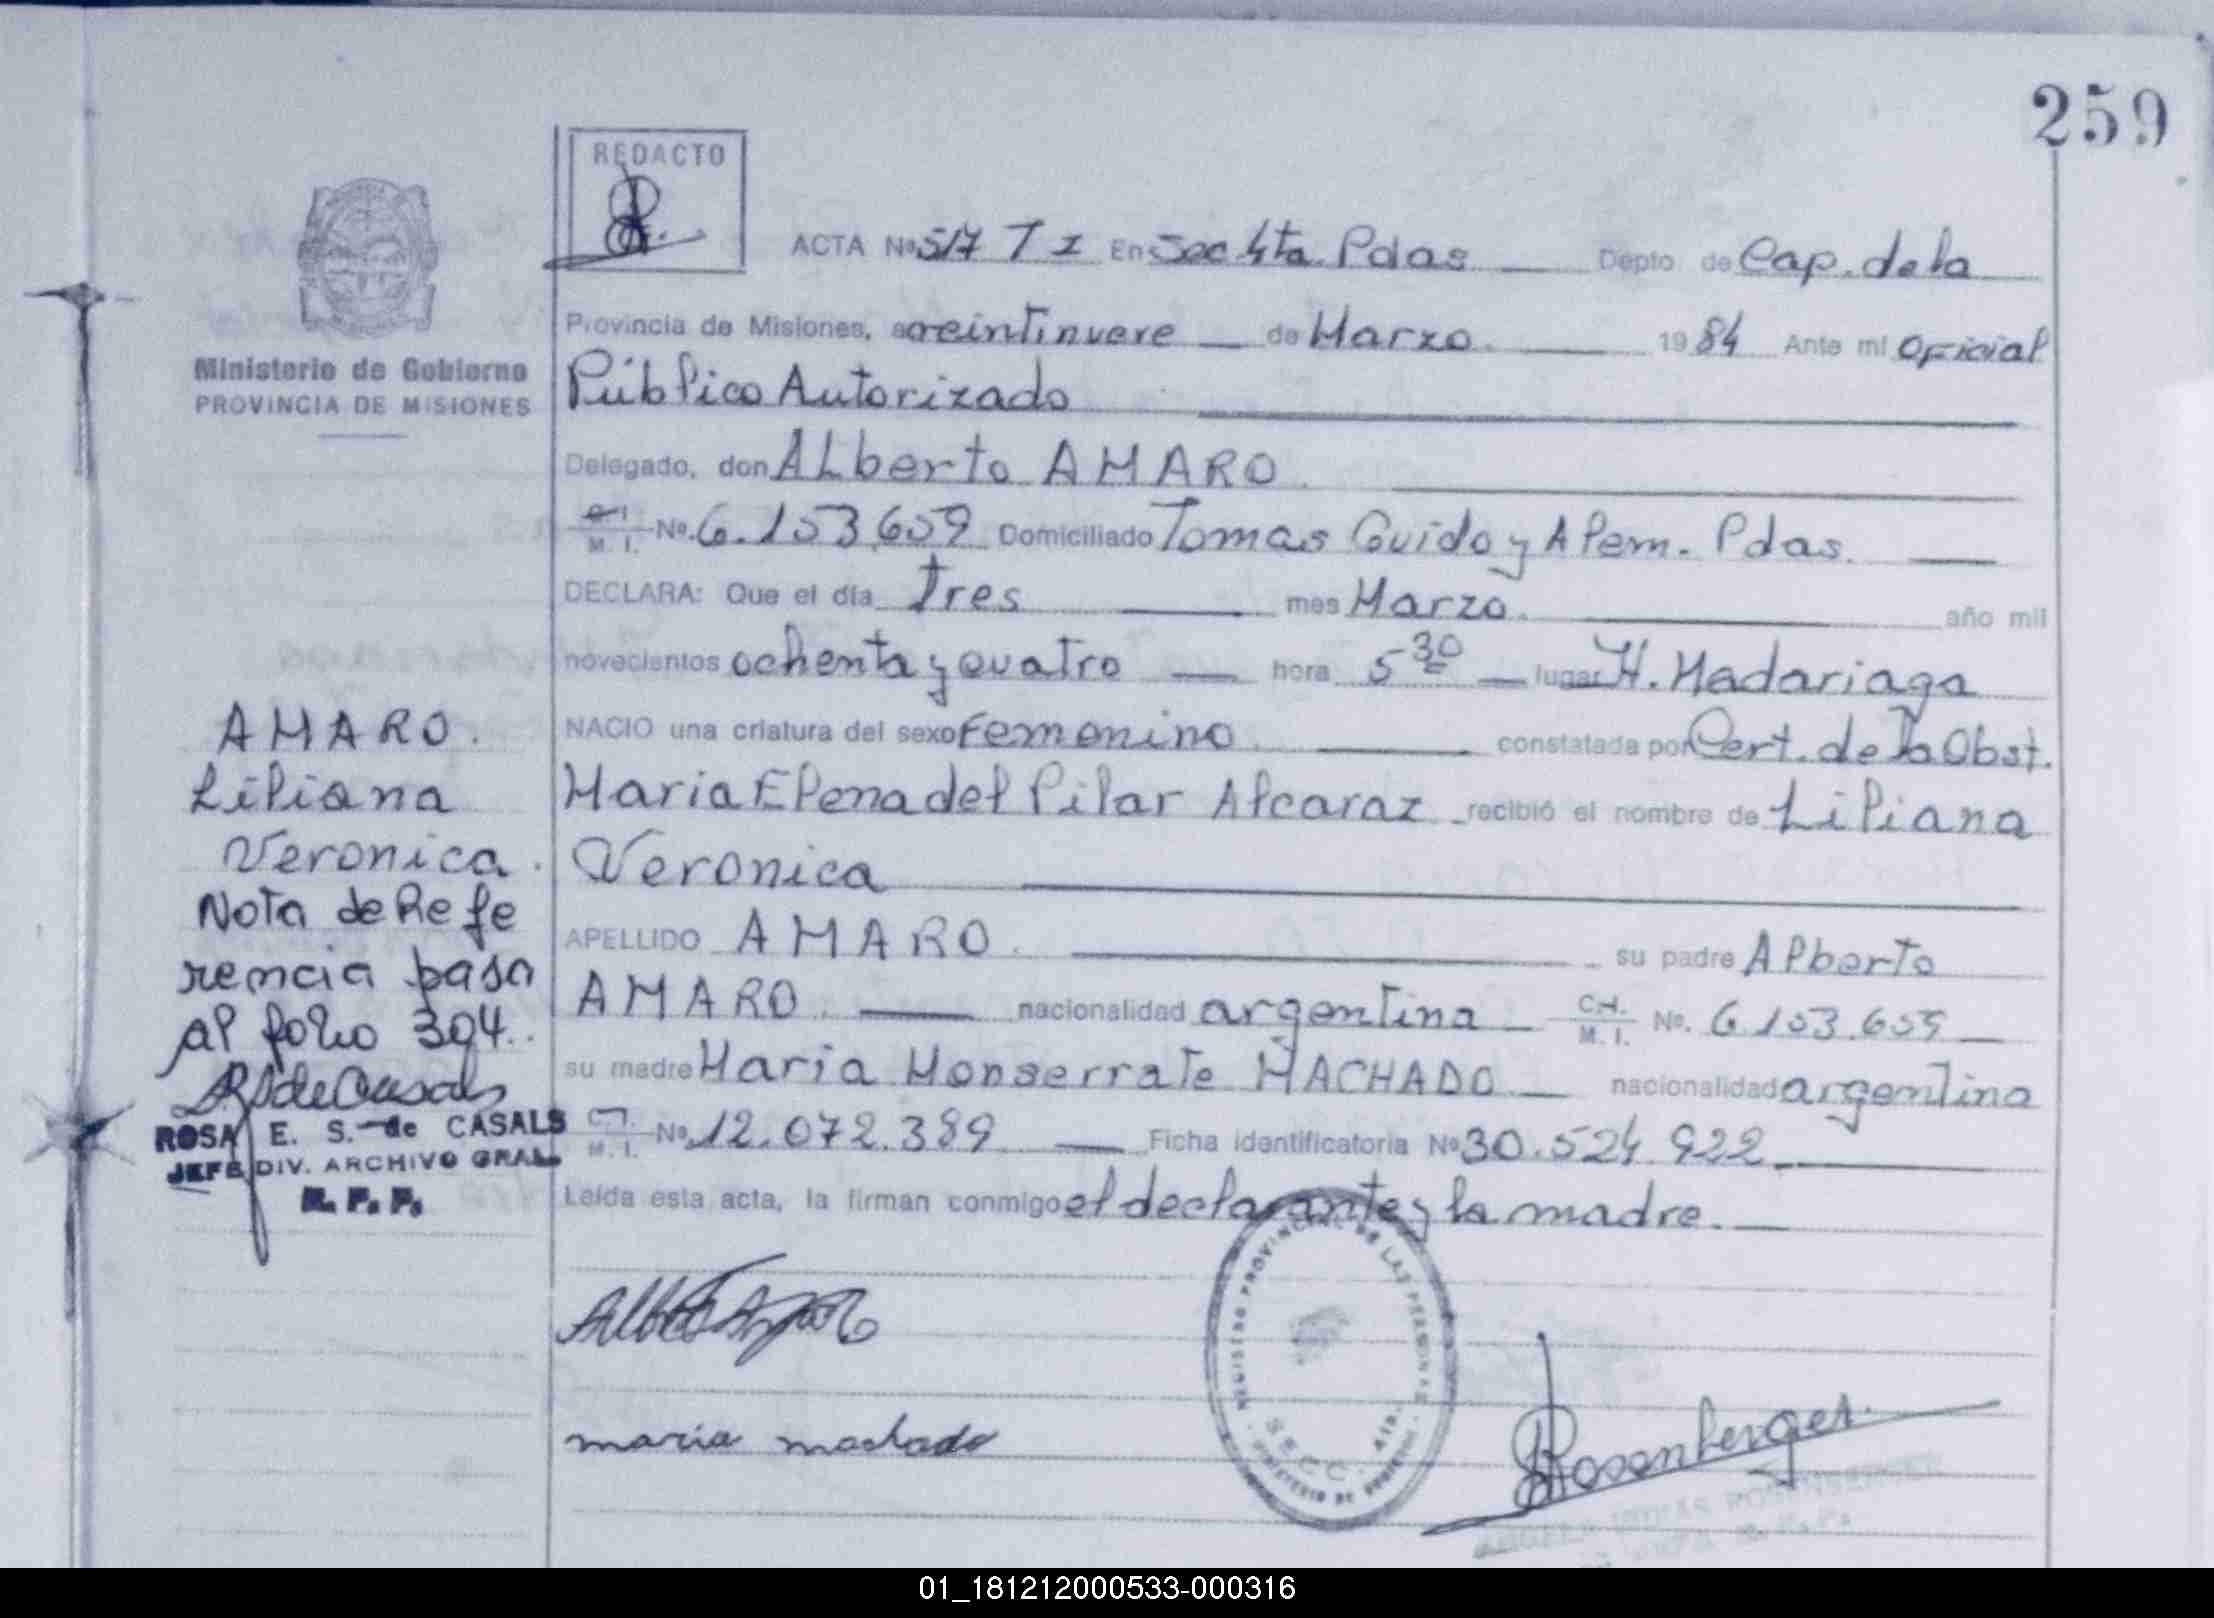 259
REDACTO
ACTA Nº 517 T I En Sec 4ta. Pdas Depto. de Cap. de la
Provincia de Misiones, a veintinueve de Marzo. 1984 Ante mi Oficial
Ministerio de Gobierno
PROVINCIA DE MISIONES
Público Autorizado
Delegado, don ALberto AMARO.
C.I. M.I. Nº 6.153.659 Domiciliado Tomas Guido y Alem. Pdas.
DECLARA: Que el día tres mes Marzo. año mil
novecientos ochenta y cuatro hora 5 30 lugar H. Madariaga
NACIO una criatura del sexo Femenino constatada por Cert. de la Obst.
Maria Elena del Pilar Alcaraz recibió el nombre de Liliana
Veronica
APELLIDO AMARO. su padre Alberto
AMARO nacionalidad argentina C.I. M.I. Nº. 6.153.659
su madre Maria Monserrate MACHADO nacionalidad argentina
C.I. M.I. Nº 12.072.389 Ficha identificatoria Nº 30.524.922
Leída esta acta, la firman conmigo el declarante y la madre.
AMARO.
Liliana
Veronica.
Nota de Refe
rencia pasa
al folio 304.
RSdeCasals
ROSA E. S. de CASALS
JEFE DIV. ARCHIVO GRAL
R. P. P.
REGISTRO PROVINCIAL DE LAS PERSONAS
SECC. 4ta.
MINISTERIO DE GOBIERNO
maria machado
Rosenberger
ROSENBERGER
01_181212000533-000316